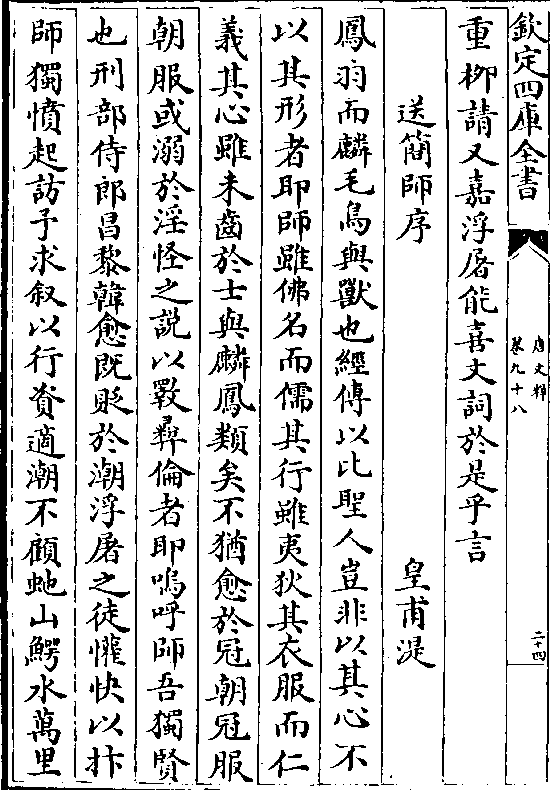 欽定四庫全書
唐文粹
卷九十八
二十四
重柳請又嘉浮屠能喜文詞於是乎言
送簡師序
皇甫湜
鳳羽而麟毛鳥與獸也經傳以比聖人豈非以其心不
以其形者耶師雖佛名而儒其行雖夷狄其衣服而仁
義其心雖未齒於士與麟鳳類矣不猶愈於冠朝冠服
朝服或溺於淫怪之説以斁彞倫者耶嗚呼師吾獨賢
也刑部侍郎昌黎韓愈既貶於潮浮屠之徒懽快以抃
師獨憤起訪予求叙以行資適潮不顧虵山鰐水萬里